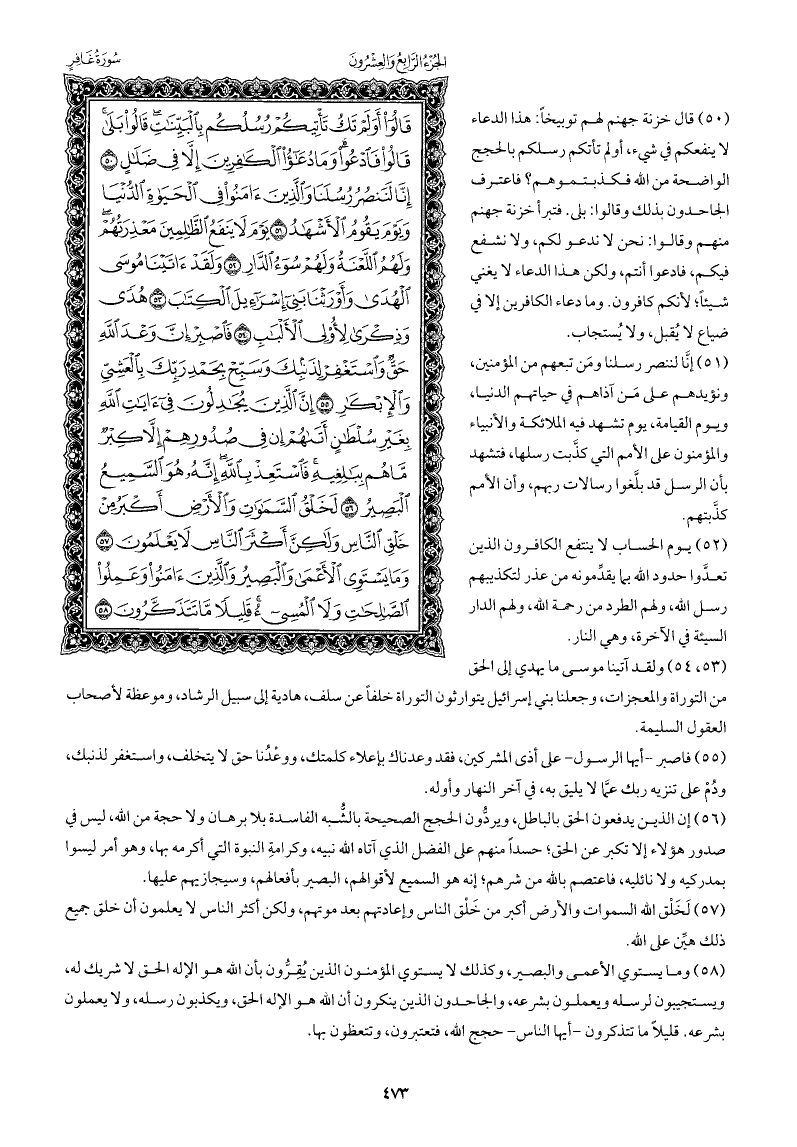 الجزء الرابع والعشرون
سورة غافر
قَالُوٓا۟ أَوَلَمْ تَكُ تَأْتِيكُمْ رُسُلُكُم بِٱلْبَيِّنَٰتِ ۖ قَالُوا۟ بَلَىٰ ۚ
قَالُوا۟ فَٱدْعُوا۟ ۗ وَمَا دُعَٰٓؤُا۟ ٱلْكَٰفِرِينَ إِلَّا فِى ضَلَٰلٍ ٥٠
إِنَّا لَنَنصُرُ رُسُلَنَا وَٱلَّذِينَ ءَامَنُوا۟ فِى ٱلْحَيَوٰةِ ٱلدُّنْيَا
وَيَوْمَ يَقُومُ ٱلْأَشْهَٰدُ ٥١ يَوْمَ لَا يَنفَعُ ٱلظَّٰلِمِينَ مَعْذِرَتُهُمْ ۖ
وَلَهُمُ ٱللَّعْنَةُ وَلَهُمْ سُوٓءُ ٱلدَّارِ ٥٢ وَلَقَدْ ءَاتَيْنَا مُوسَى
ٱلْهُدَىٰ وَأَوْرَثْنَا بَنِىٓ إِسْرَٰٓءِيلَ ٱلْكِتَٰبَ ٥٣ هُدًى
وَذِكْرَىٰ لِأُو۟لِى ٱلْأَلْبَٰبِ ٥٤ فَٱصْبِرْ إِنَّ وَعْدَ ٱللَّهِ
حَقٌّ وَٱسْتَغْفِرْ لِذَنۢبِكَ وَسَبِّحْ بِحَمْدِ رَبِّكَ بِٱلْعَشِىِّ
وَٱلْإِبْكَٰرِ ٥٥ إِنَّ ٱلَّذِينَ يُجَٰدِلُونَ فِىٓ ءَايَٰتِ ٱللَّهِ
بِغَيْرِ سُلْطَٰنٍ أَتَىٰهُمْ ۙ إِن فِى صُدُورِهِمْ إِلَّا كِبْرٌ
مَّا هُم بِبَٰلِغِيهِ ۚ فَٱسْتَعِذْ بِٱللَّهِ ۖ إِنَّهُۥ هُوَ ٱلسَّمِيعُ
ٱلْبَصِيرُ ٥٦ لَخَلْقُ ٱلسَّمَٰوَٰتِ وَٱلْأَرْضِ أَكْبَرُ مِنْ
خَلْقِ ٱلنَّاسِ وَلَٰكِنَّ أَكْثَرَ ٱلنَّاسِ لَا يَعْلَمُونَ ٥٧
وَمَا يَسْتَوِى ٱلْأَعْمَىٰ وَٱلْبَصِيرُ وَٱلَّذِينَ ءَامَنُوا۟ وَعَمِلُوا۟
ٱلصَّٰلِحَٰتِ وَلَا ٱلْمُسِىٓءُ ۚ قَلِيلًا مَّا تَتَذَكَّرُونَ ٥٨
(٥٠) قال خزنة جهنم لهم توبيخاً: هذا الدعاء
لا ينفعكم في شيء، أولم تأتكم رسلكم بالحجج
الواضحة من الله فكذبتموهم؟ فاعترف
الجاحدون بذلك وقالوا: بلى. فتبرأ خزنة جهنم
منهم وقالوا: نحن لا ندعو لكم، ولا نشفع
فيكم، فادعوا أنتم، ولكن هذا الدعاء لا يغني
شيئاً؛ لأنكم كافرون. وما دعاء الكافرين إلا في
ضياع لا يُقبل، ولا يُستجاب.
(٥١) إنَّا لننصر رسلنا ومَن تبعهم من المؤمنين،
ونؤيدهم على مَن آذاهم في حياتهم الدنيا،
ويوم القيامة، يوم تشهد فيه الملائكة والأنبياء
والمؤمنون على الأمم التي كذَّبت رسلها، فتشهد
بأن الرسل قد بلَّغوا رسالات ربهم، وأن الأمم
كذَّبتهم.
(٥٢) يوم الحساب لا ينتفع الكافرون الذين
تعدَّوا حدود الله بما يقدِّمونه من عذر لتكذيبهم
رسل الله، ولهم الطرد من رحمة الله، ولهم الدار
السيئة في الآخرة، وهي النار.
(٥٣، ٥٤) ولقد آتينا موسى ما يهدي إلى الحق
من التوراة والمعجزات، وجعلنا بني إسرائيل يتوارثون التوراة خلفاً عن سلف، هادية إلى سبيل الرشاد، وموعظة لأصحاب
العقول السليمة.
(٥٥) فاصبر -أيها الرسول- على أذى المشركين، فقد وعدناك بإعلاء كلمتك، ووعْدُنا حق لا يتخلف، واستغفر لذنبك،
ودُمْ على تنزيه ربك عمَّا لا يليق به، في آخر النهار وأوله.
(٥٦) إن الذين يدفعون الحق بالباطل، ويردُّون الحجج الصحيحة بالشُّبه الفاسدة بلا برهان ولا حجة من الله، ليس في
صدور هؤلاء إلا تكبر عن الحق؛ حسداً منهم على الفضل الذي آتاه الله نبيه، وكرامةِ النبوة التي أكرمه بها، وهو أمر ليسوا
بمدركيه ولا نائليه، فاعتصم بالله من شرهم؛ إنه هو السميع لأقوالهم، البصير بأفعالهم، وسيجازيهم عليها.
(٥٧) لَخَلْق الله السموات والأرض أكبر من خَلْق الناس وإعادتهم بعد موتهم، ولكن أكثر الناس لا يعلمون أن خلق جميع
ذلك هيِّن على الله.
(٥٨) وما يستوي الأعمى والبصير، وكذلك لا يستوي المؤمنون الذين يُقِرُّون بأن الله هو الإله الحق لا شريك له،
ويستجيبون لرسله ويعملون بشرعه، والجاحدون الذين ينكرون أن الله هو الإله الحق، ويكذبون رسله، ولا يعملون
بشرعه. قليلاً ما تتذكرون -أيها الناس- حجج الله، فتعتبرون، وتتعظون بها.
٤٧٣